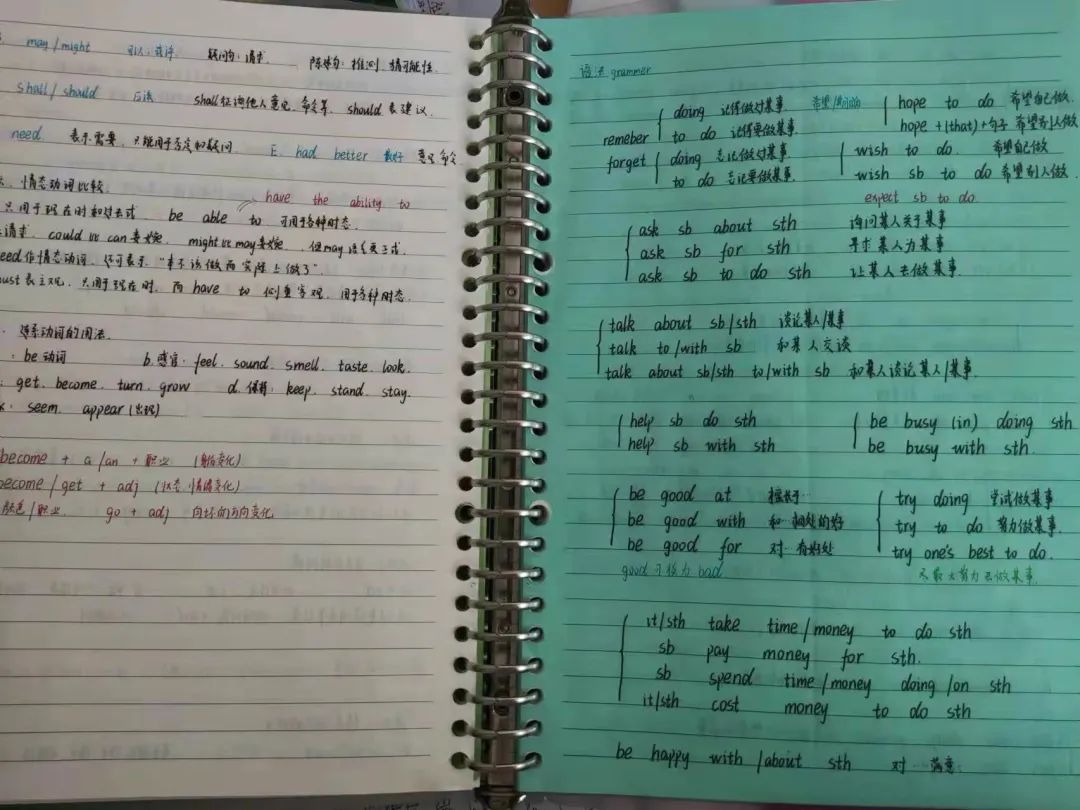 may/might 可以；或许 疑问句：请求 陈述句：推测，猜可能性
shall/should 应该 shall征询他人意见，命令等，should 表建议
need 表示需要，只能用于否定和疑问 E. had better 最好 意见，命令
情态动词比较
have the ability to
只用于现在时和过去式 be able to 可用于各种时态
请求 could 比 can 委婉 might比may委婉，但may语气更正式
need作情态动词，还可表示“本不该做而实际上做了”
must表主观，只用于现在时，而 have to 侧重客观，用于各种时态
连系动词的用法
: be 动词 b.感官：feel. sound. smell. taste. look.
: get. become. turn. grow d. 保持：keep. stand. stay.
seem. appear(出现)
become + a/an + 职业 (身份变化)
become/get + adj (状态，情绪变化)
颜色/职业 go + adj 向坏的方向变化
语法 grammer
remeber doing 记得做过某事
to do 记得要做某事
forget doing 忘记做过某事
to do 忘记要做某事
希望 hope to do 希望自己做
hope +(that)+句子 希望别人做
wish to do. 希望自己做
wish sb to do 希望别人做
expect sb to do.
ask sb about sth 询问某人关于某事
ask sb for sth 寻求某人为某事
ask sb to do sth 让某人去做某事
talk about sb/sth 谈论某人/某事
talk to/with sb 和某人交谈
talk about sb/sth to/with sb 和某人谈论某人/某事
help sb do sth
help sb with sth
be busy (in) doing sth
be busy with sth.
be good at 擅长…
be good with 和…相处的好
be good for 对…有好处
good 可换为 bad
try doing 尝试做某事
try to do 努力做某事
try one's best to do.
尽最大努力去做某事
it/sth take time/money to do sth
sb pay money for sth.
sb spend time/money doing/on sth
it/sth cost money to do sth
be happy with/about sth 对…满意